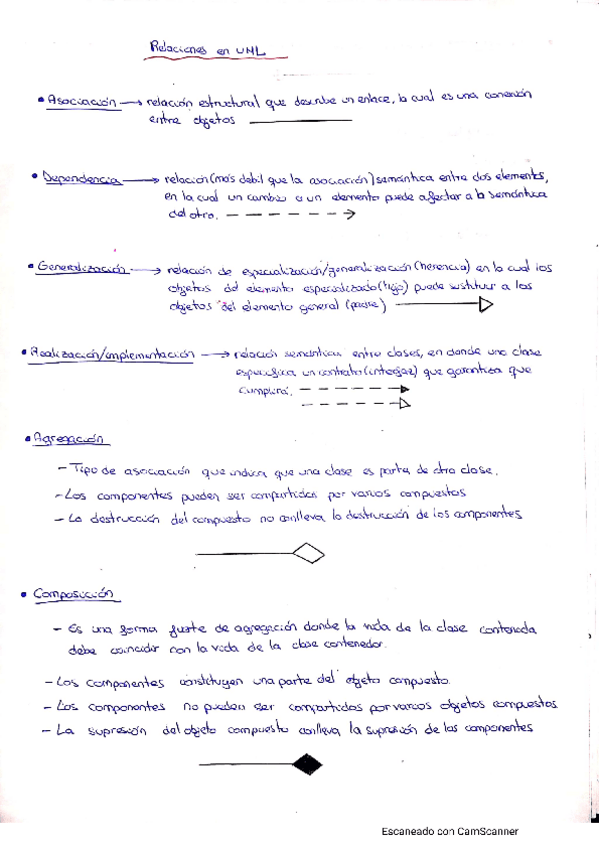 Relaciones en UML
• Asociación → relación estructural que describe un enlace, la cual es una conexión
entre objetos
• Dependencia → relación (más debil que la asociación) semántica entre dos elements,
en la cual un cambio a un elemento puede afectar a la semántica
del otro.
• Generalización → relación de especialización/generalización (herencia) en la cual los
objetos del elemento especializado (hijo) puede sustituir a los
objetos del elemento general (padre)
• Realización/implementación → relación semántica entre clases, en donde una clase
especifica un contrato (interfaz) que garantiza que
cumplirá.
• Agregación
- Tipo de asociación que indica que una clase es parte de otra clase.
- Los componentes pueden ser compartidos por varios compuestos
- La destrucción del compuesto no conlleva la destrucción de los componentes
• Composición
- Es una forma fuerte de agregación donde la vida de la clase contenida
debe coincidir con la vida de la clase contenedor.
- Los componentes constituyen una parte del objeto compuesto.
- Los componentes no pueden ser compartidos por varios objetos compuestos
- La supresión del objeto compuesto conlleva la supresión de los componentes
Escaneado con CamScanner